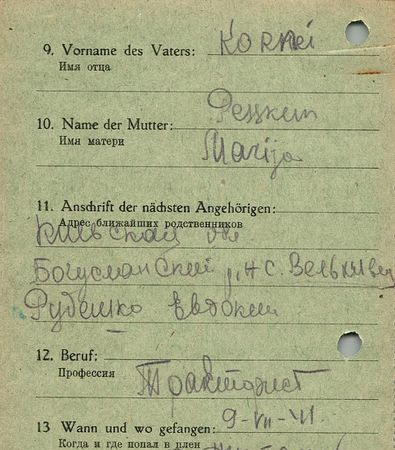 9. Vorname des Vaters: Kornei
Имя отца
10. Name der Mutter:
Имя матери
Marija
11. Anschrift der nächsten Angehörigen:
Адрес ближайших родственников
Киевская обл
Богуславский р,н с.
Евдокии
12. Beruf:
Профессия
Тракторист
13 Wann und wo gefangen: 9-VII-41
Когда и где попал в плен